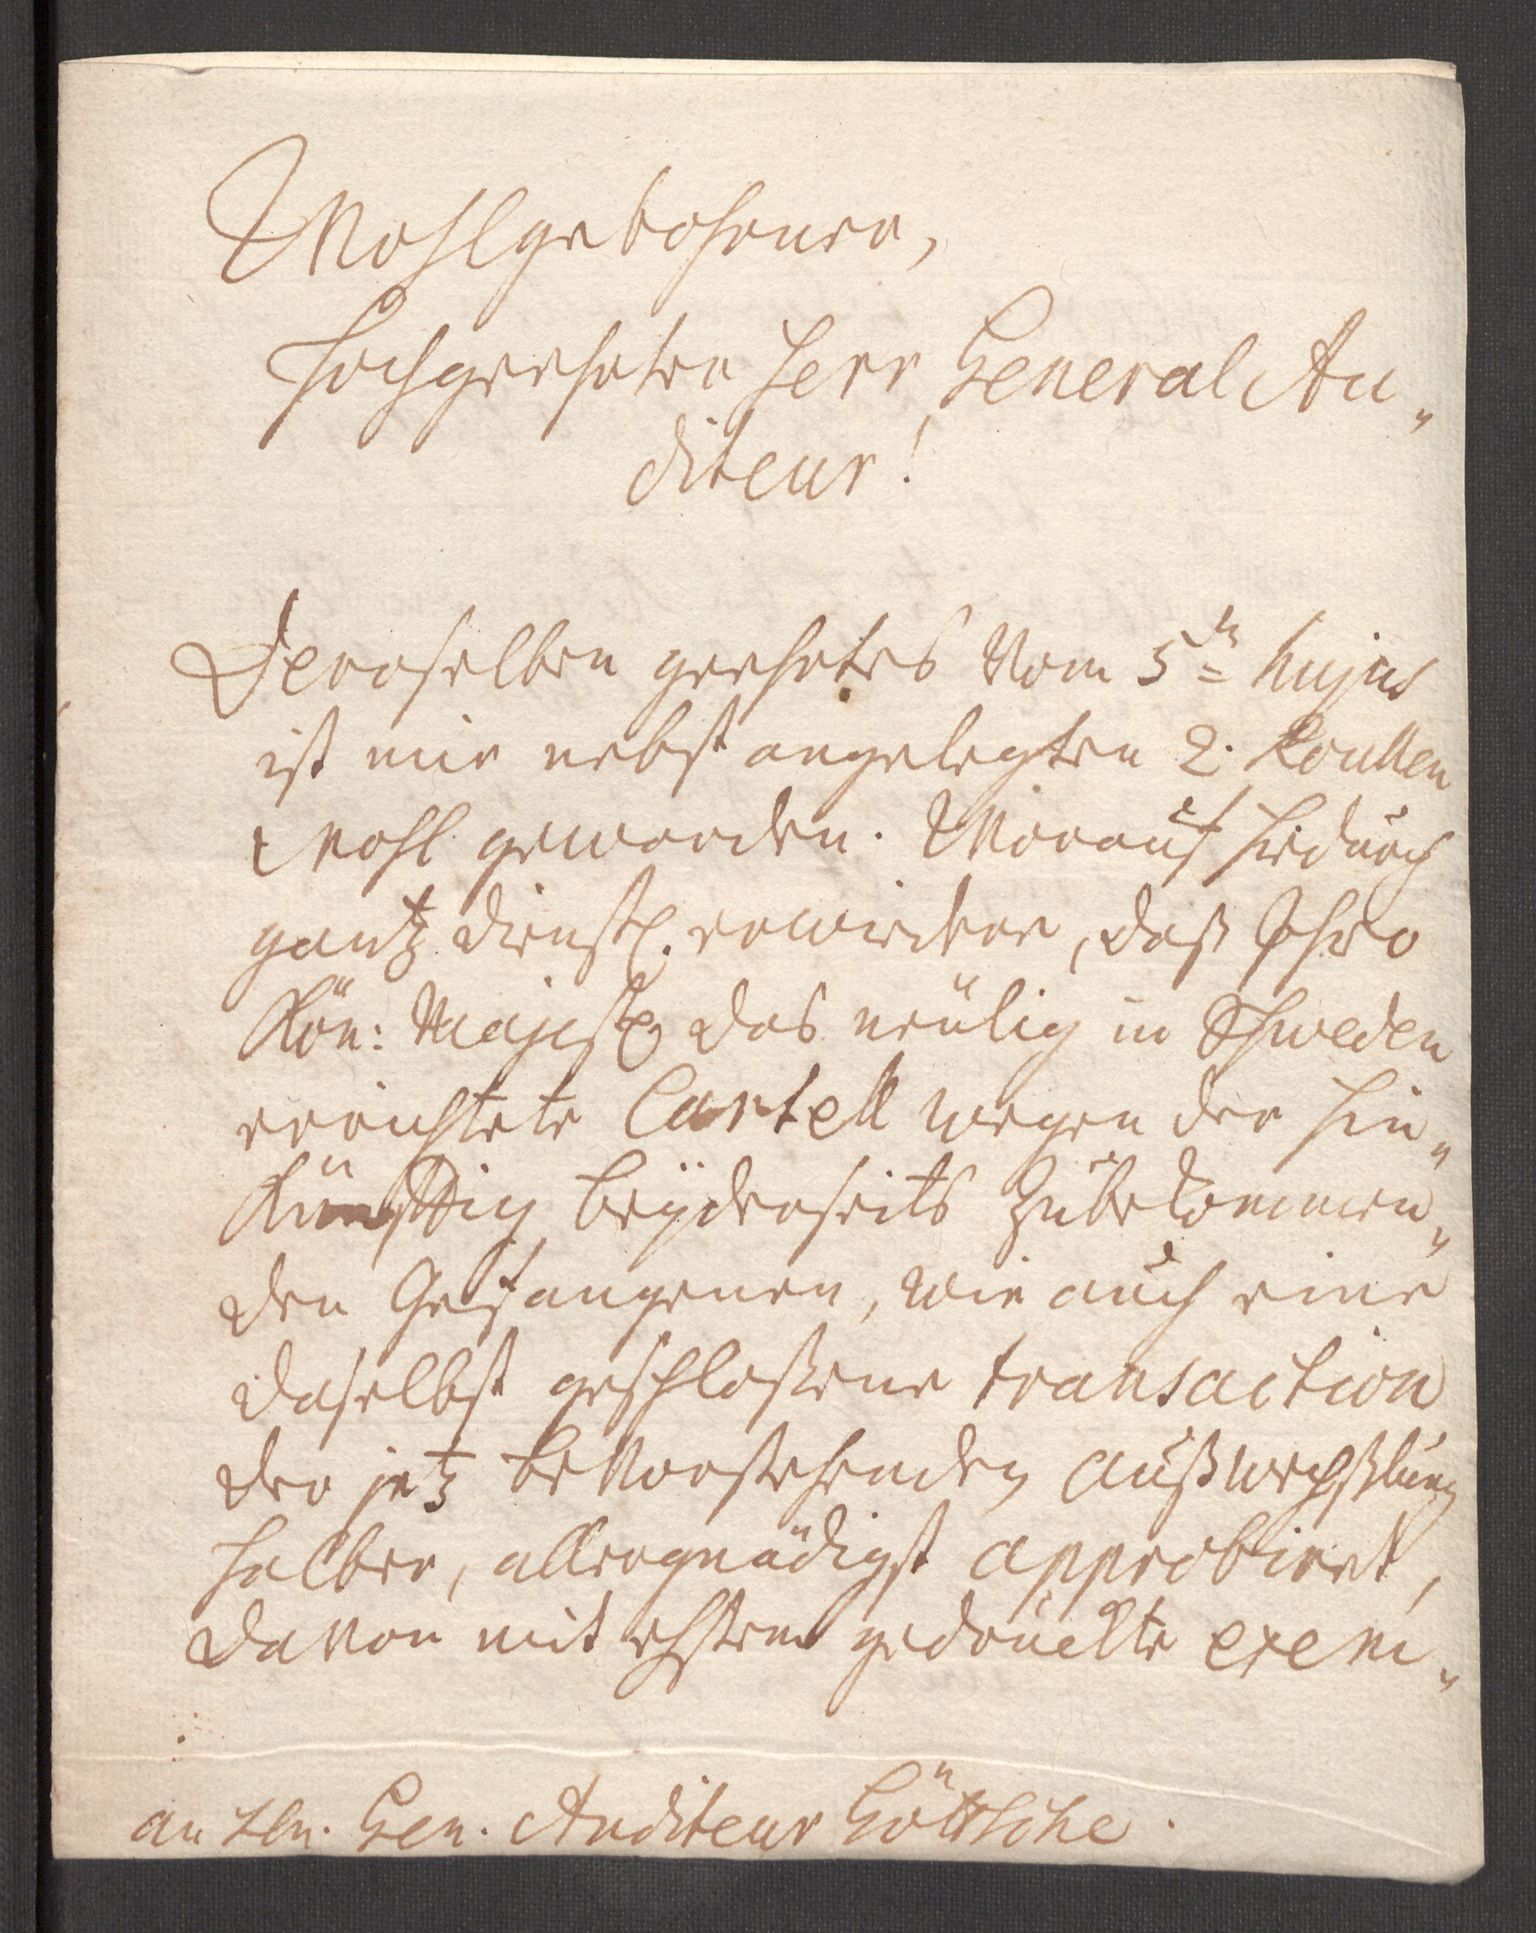 Wohlgebohrner,
Hochgeehrter Herr General Au„
diteur!
Deroselben geehrtes Vom 5ten hujus
ist mir nebst angelegten 2. Roullen
Wohl geworden. Worauf hiedurch
gantz dienstl. erwiedere, daß Ihro
Kön: Majestet das neülig in Schweden
errichtete Cartell wegen der hin„
Künfftig beÿderseits Zubekommen„
den Gefangenen, wie auch eine
daselbst geschloßene transaction
der jetz bevorstehenden außwechßlung
halber, allergnädigst approbiret,
davon mit ehstem gedruckte exem„
an Hn. Gen. Auditeur Göttsche.